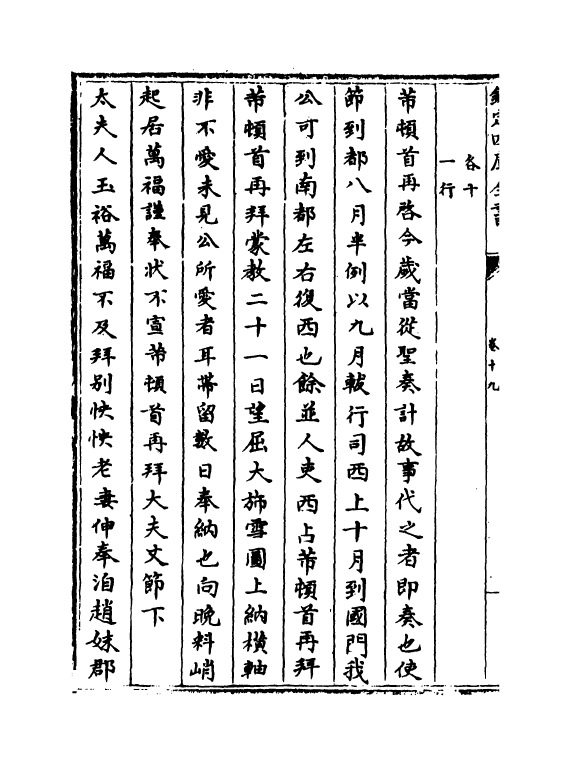 欽定四庫全書
卷十九
各十
一行
芾頓首再啓今歲當從聖奏計故事代之者即奏也使
節到都八月半例以九月軷行司西上十月到國門我
公可到南都左右復西也餘並人吏西占芾頓首再拜
芾頓首再拜蒙教二十一日望屈大旆雪圖上納橫軸
非不愛未見公所愛者耳帶留數日奉納也向晚料峭
起居萬福謹奉狀不宣芾頓首再拜大夫丈節下
太夫人玉裕萬福不及拜別怏怏老妻伸奉洎趙妹郡